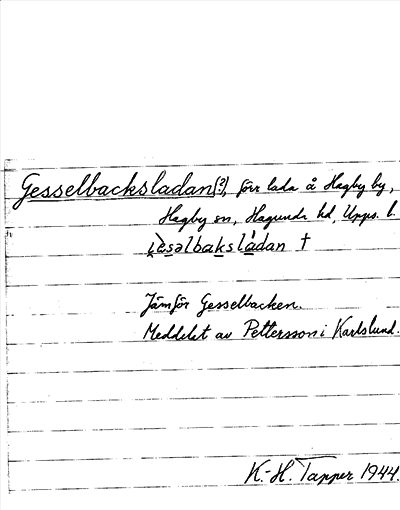 Gesselbacksladan(?), förr lada å Hagby by,
Hagby sn, Hagunda hd, Upps. l.
i̯esəlbakslådan †
Jämför Gesselbacken.
Meddelat av Pettersson i Karlslund.
K.-H. Tapper 1944.